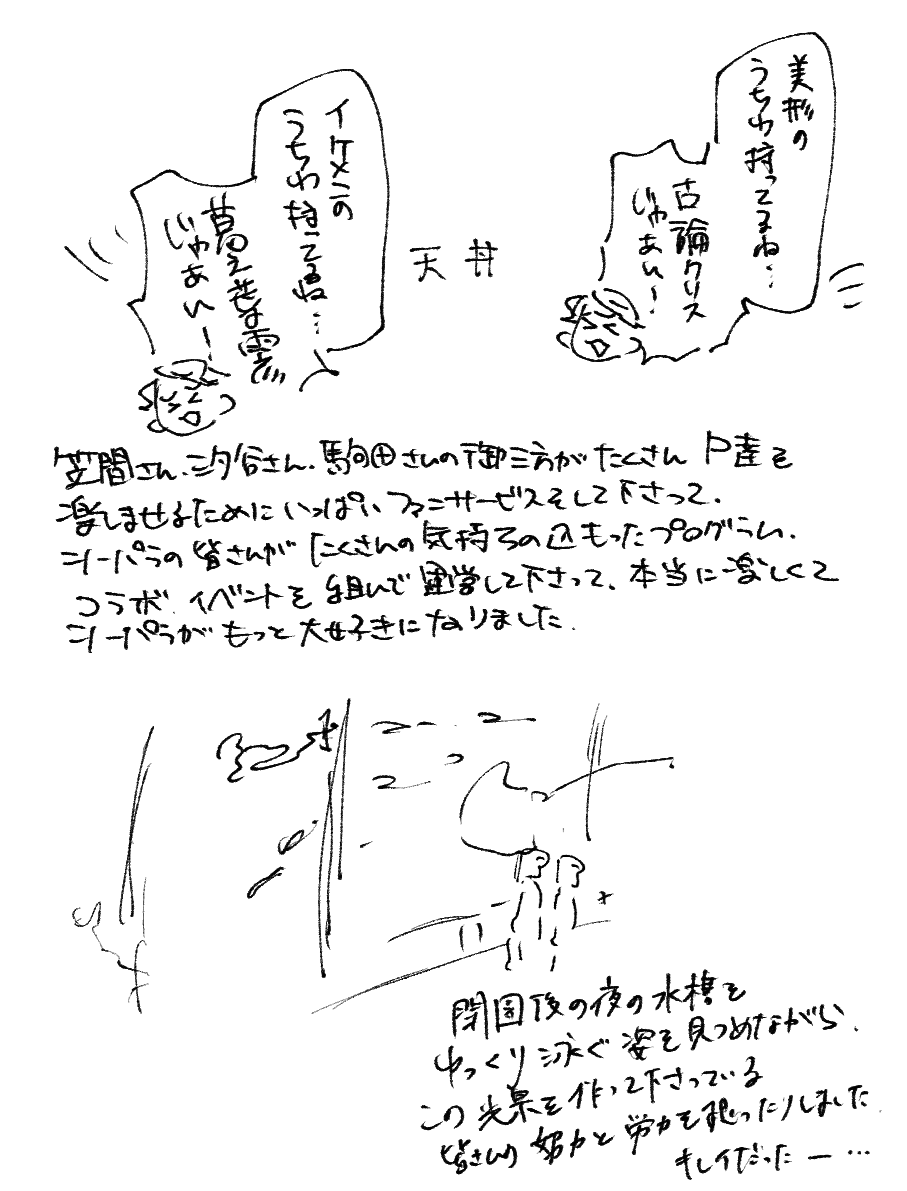 美形の
うちわ持ってるね…
古論クリス
じゃあい!
イケメンの
うちわ持ってるね…
葛之葉雨彦
じゃあい ー!
天井
笠間さん、汐谷さん、駒田さんの御三方がたくさん P達を
楽しませるためにいっぱいファンサービスをして下さって、
シーパラの皆さんがたくさんの気持ちの込もったプログラム、
コラボ、イベントを組んで運営して下さって、本当に楽しくて
シーパラがもっと大好きになりました。
閉園後の夜の水槽を
ゆっくり泳ぐ姿を見つめながら、
この光景を作って下さっている
皆さんの努力と労力を想ったりしました
キレイだったー…